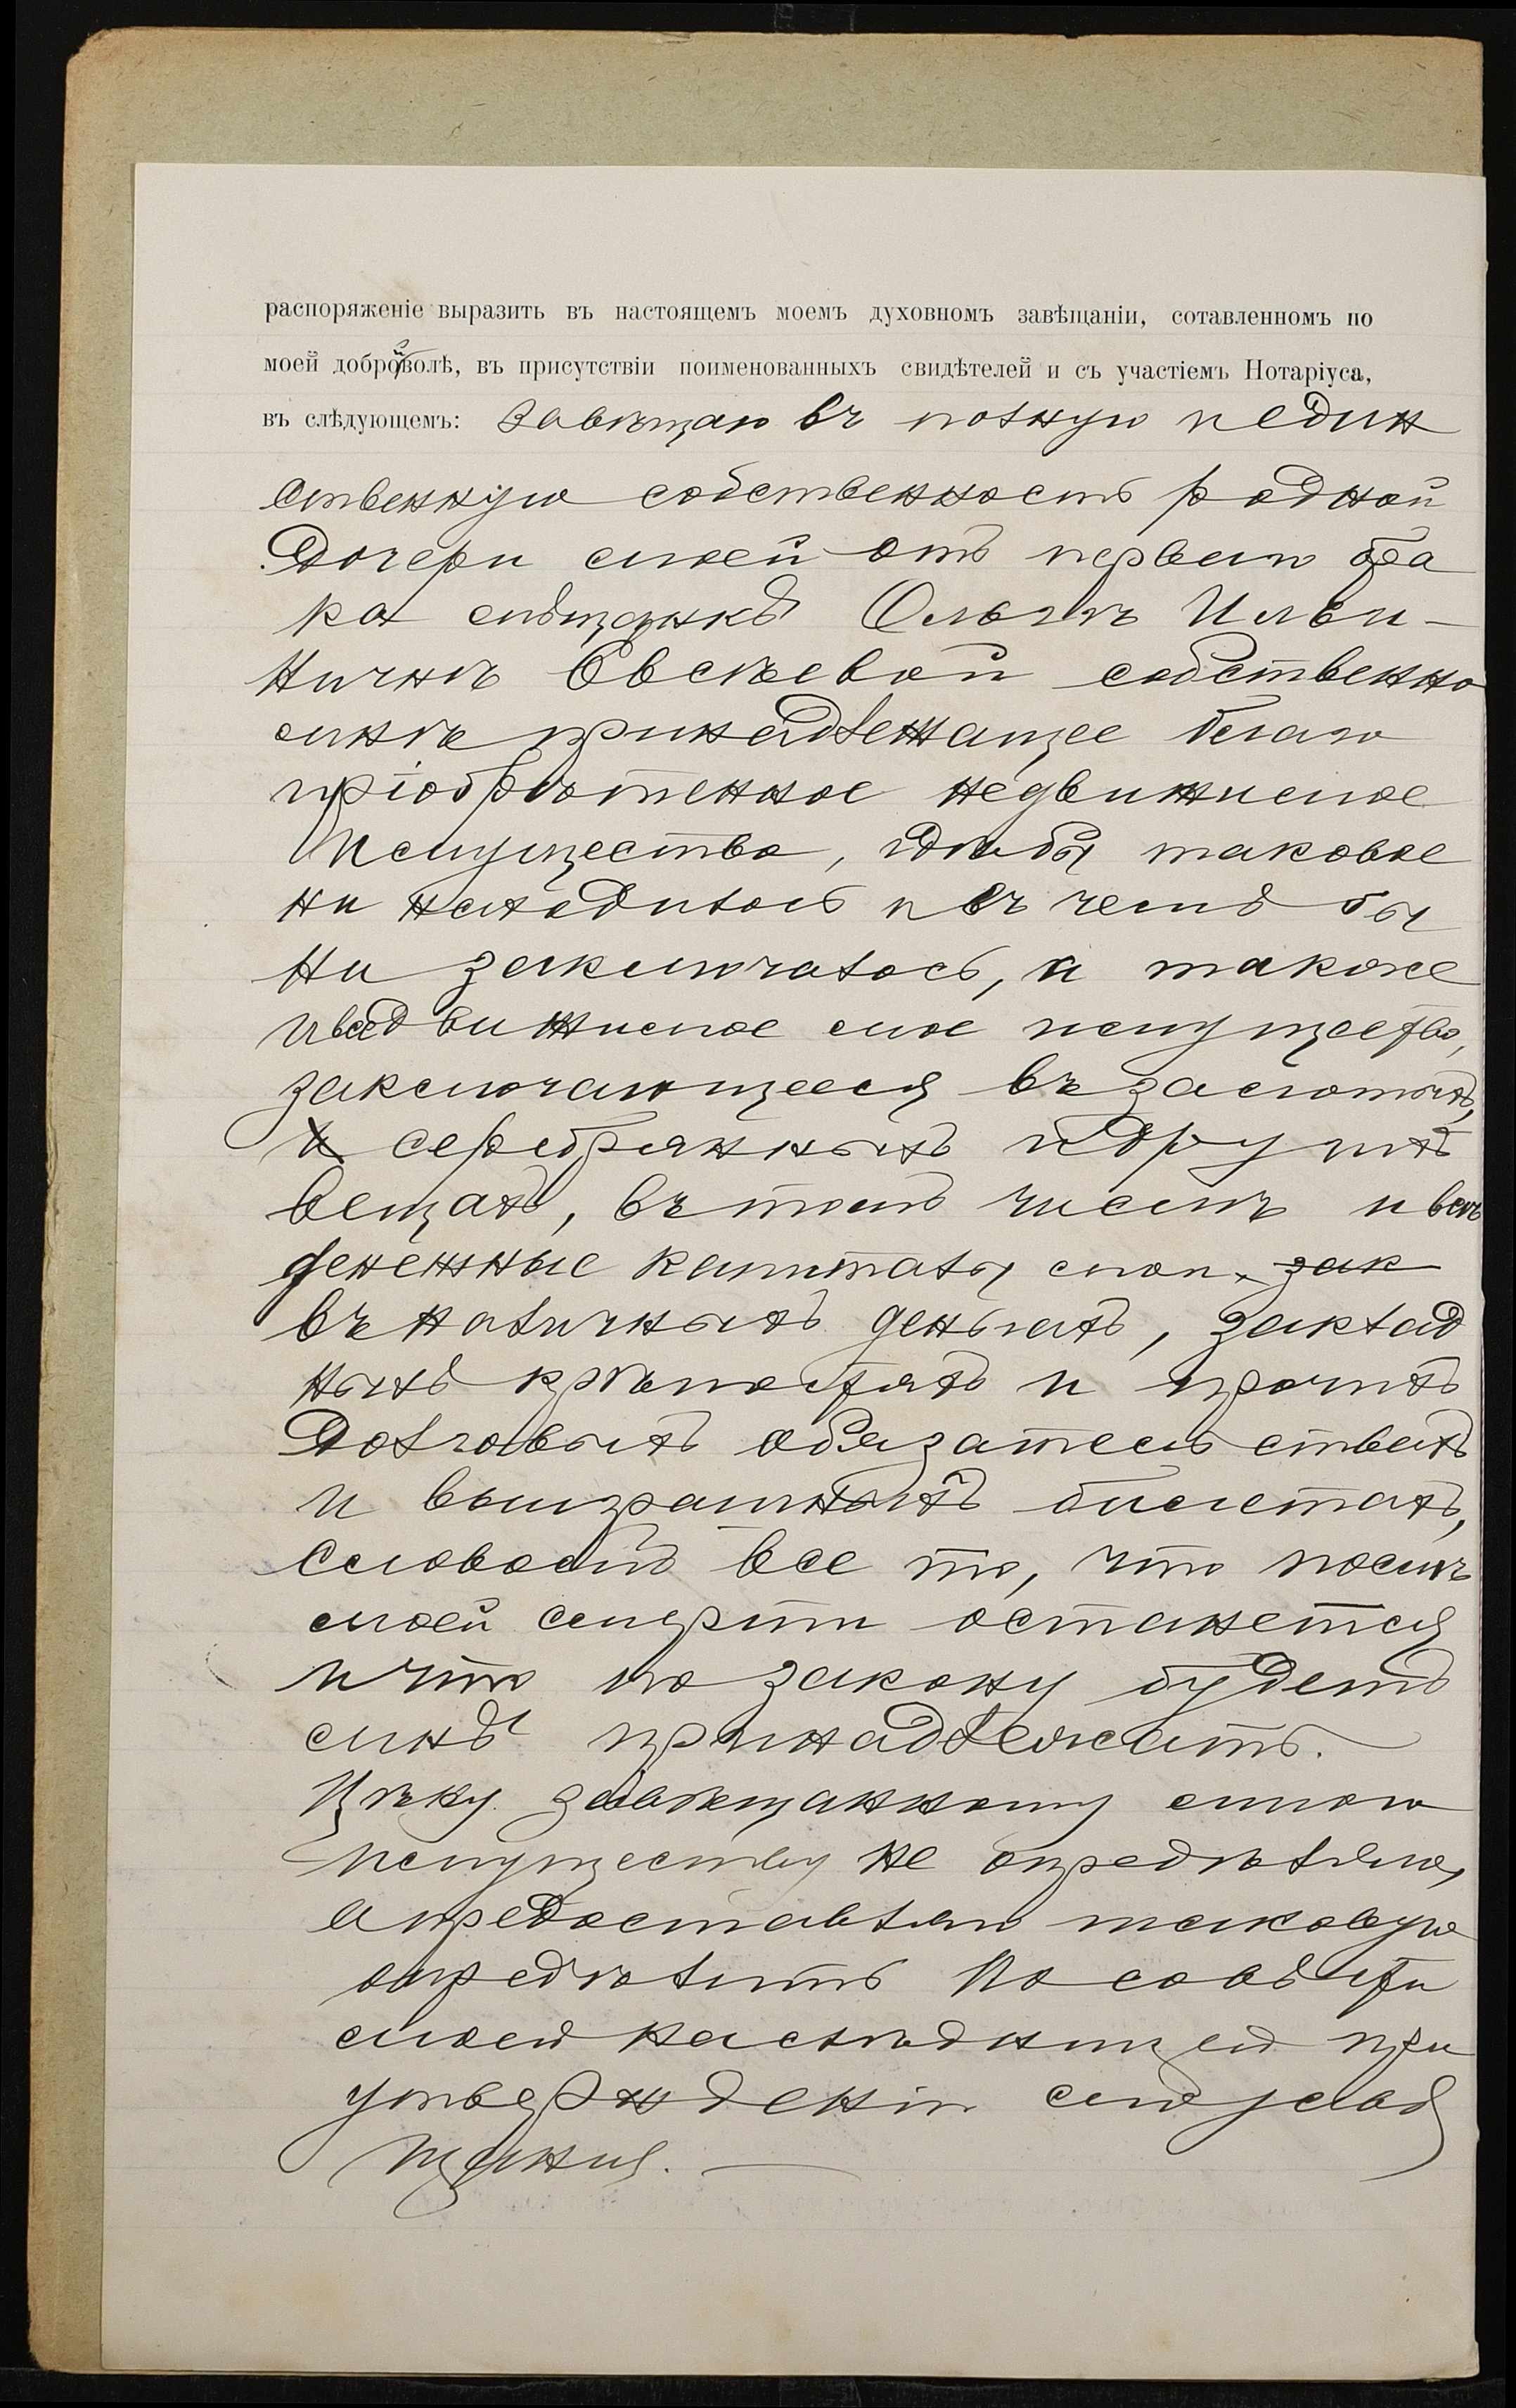 распоряженіе выразить въ настоящемъ моемъ духовномъ завѣщаніи, сотавленномъ по
моей доброй волѣ, въ присутствіи поименованныхъ свидѣтелей и съ участіемъ Нотаріуса,
въ слѣдующемъ: Завѣщаю въ полную и един
ственную собственность родной
Дочери моей отъ перваго бра
ка мѣщанкѣ Ольгѣ Ильи-
ничнѣ Евсѣевой собственно
мнѣ принадлежащее благо
пріобрѣтенное недвижимое
Имущество, гдѣ бы таковое
ни находилось и въ чемъ бы
ни заключалось, а также
и все движимое мое имущество,
заключающееся въ золотыхъ,
и серебрянныхъ и другихъ
вещахъ, въ томъ числѣ и всѣ
денежные капиталы мои, зак
въ наличныхъ деньгахъ, заклад
ныхъ крѣпостяхъ и прочихъ
Долговыхъ обязательствахъ
и выигрышныхъ билетахъ,
Словомъ все то, что послѣ
моей смерти останется
и что по закону будетъ
мнѣ принадлежать.
Цѣну завѣщанному мною
имуществу не опредѣляю,
а предоставляю таковую
опредѣлить по совѣсти
моей наслѣдницей при
утвержденіи сего завѣ
щанія.